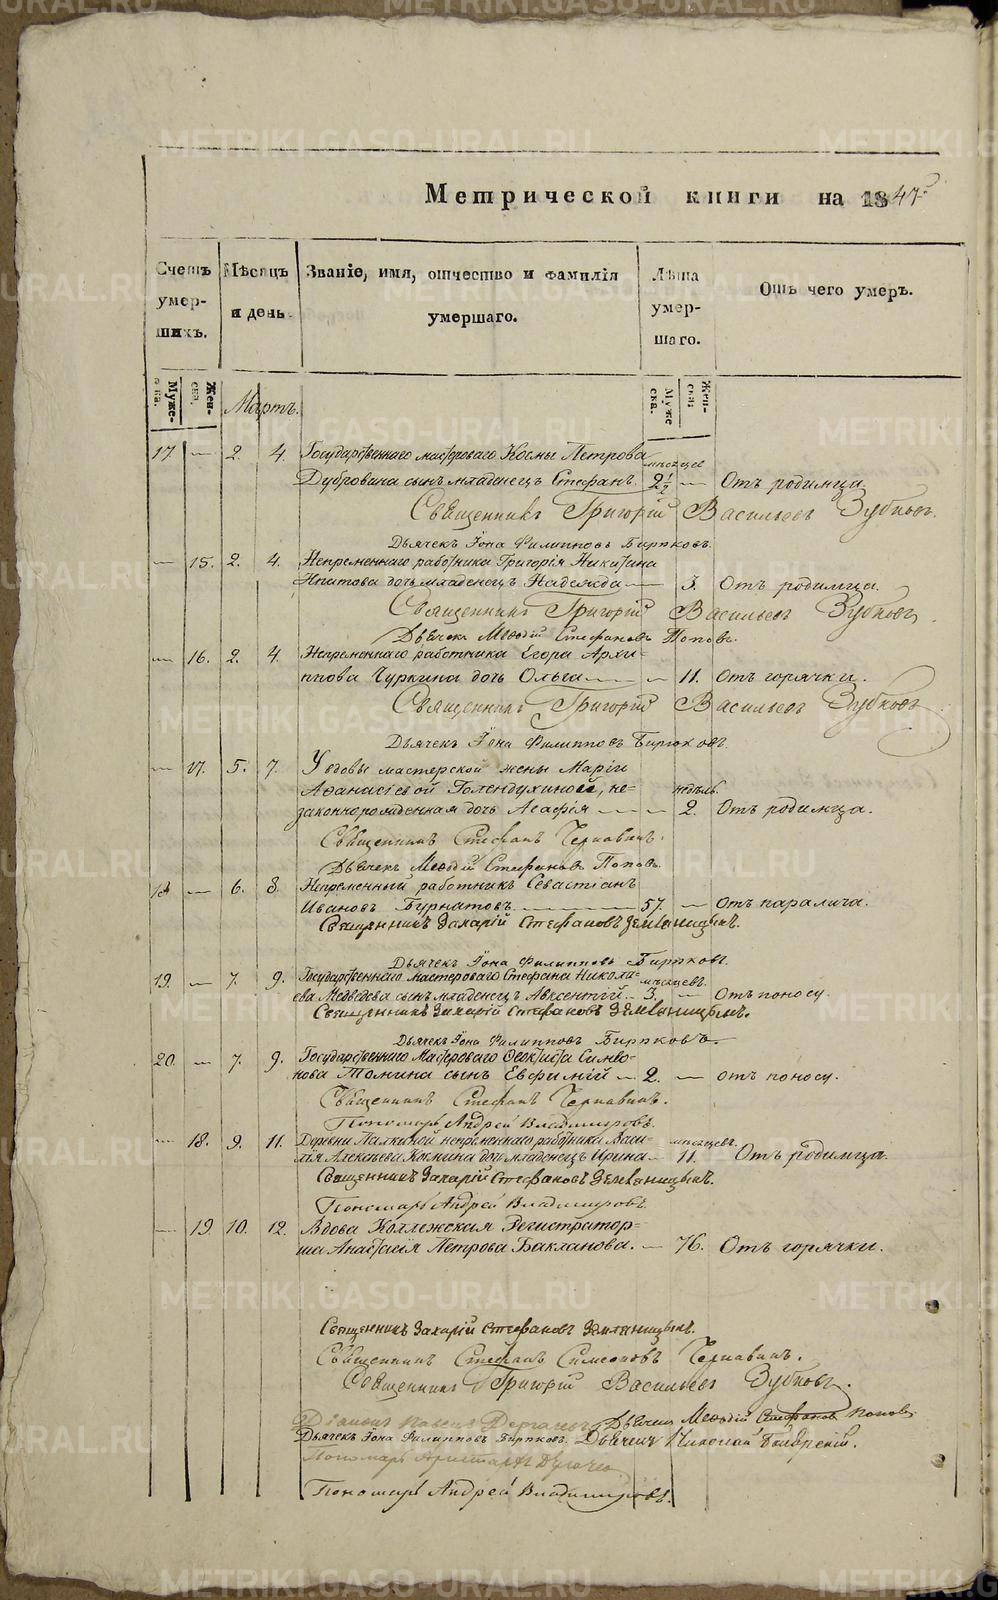 Метрической книги на 1847
Счетъ умер-шихъ.
Мѣсяцъ и день.
Званіе, имя, отчество и фамилія умершаго.
Лѣта умер-шаго.
Отъ чего умеръ.
Муже-ска.
Жен-ска.
Мартъ.
Муже ска.
Жен-ски
17. — 2. 4. Государственнаго мастероваго Космы Петрова
мѣсяцев
Дубровина сынъ младенецъ Стефанъ. 2½ — Отъ родимца.
Священникъ Григорій Васильевъ Зубковъ.
Дьячекъ Іона Филипповъ Бирюковъ.
— 15. 2. 4. Непременнаго работника Григорія Никитина
дочь младенецъ Надежда — 3. Отъ родимца.
Священникъ Григорій Васильевъ Зубковъ.
Дьячекъ Меѳодій Стефановъ Поповъ.
— 16. 2. 4. Непременнаго работника Егора Архи-
пова Чуркина дочь Ольга — — 11. Отъ горячки.
Священникъ Григорій Васильевъ Зубковъ
Дьячекъ Іона Филипповъ Бирюковъ.
— 17. 5. 7. У вдовы мастерской жены Маріи
Аѳанасіевой Голендухиной, не- недѣль.
законнорожденная дочь Агафія — — 2. Отъ родимца.
Священникъ Стефанъ Чернавинъ.
Дьячекъ Меѳодій Стефановъ Поповъ.
18 — 6. 8. Непременный работникъ Севастіанъ
Ивановъ Бурнатовъ. — 57. — Отъ паралича.
Священникъ Захарій Стефановъ Земляницынъ.
Дьячекъ Іона Филипповъ Бирюковъ.
19. — 7. 9. Государственнаго мастероваго Стефана Никола-
мѣсяцевъ.
ева Медведева сынъ младенецъ Авксентій — 3. — Отъ поносу.
Священникъ Захарій Стефановъ Земляницынъ.
Дьячекъ Іона Филипповъ Бирюковъ.
20. — 7. 9. Государственнаго Мастероваго Ѳеоктиста Симео-
нова Томина сынъ Евфимій — 2. — отъ поносу.
Священникъ Стефанъ Чернавинъ.
Пономарь Андрей Владимировъ.
— 18. 9. 11. Деревни Палкиной непременнаго работника Васи-
мѣсяцевъ.
лія Алексѣева дочь младенецъ Ирина — 11. Отъ родимца.
Священникъ Захарій Стефановъ Земляницынъ.
Пономарь Андрей Владимировъ.
— 19. 10. 12. Вдова Коллежская Регистратор-
ша Анастасія Петрова Бакланова. — 76. Отъ горячки.
Священникъ Захарій Стефановъ Земляницынъ.
Священникъ Стефанъ Симеоновъ Чернавинъ.
Священникъ Григорій Васильевъ Зубковъ.
Діаконъ Павелъ Дьячекъ Меѳодій Стефановъ Поповъ
Дьячекъ Іона Филипповъ Бирюковъ. Дьячекъ Николай
Пономарь
Пономарь Андрей Владимировъ.
METRIKI.GASO-URAL.RU